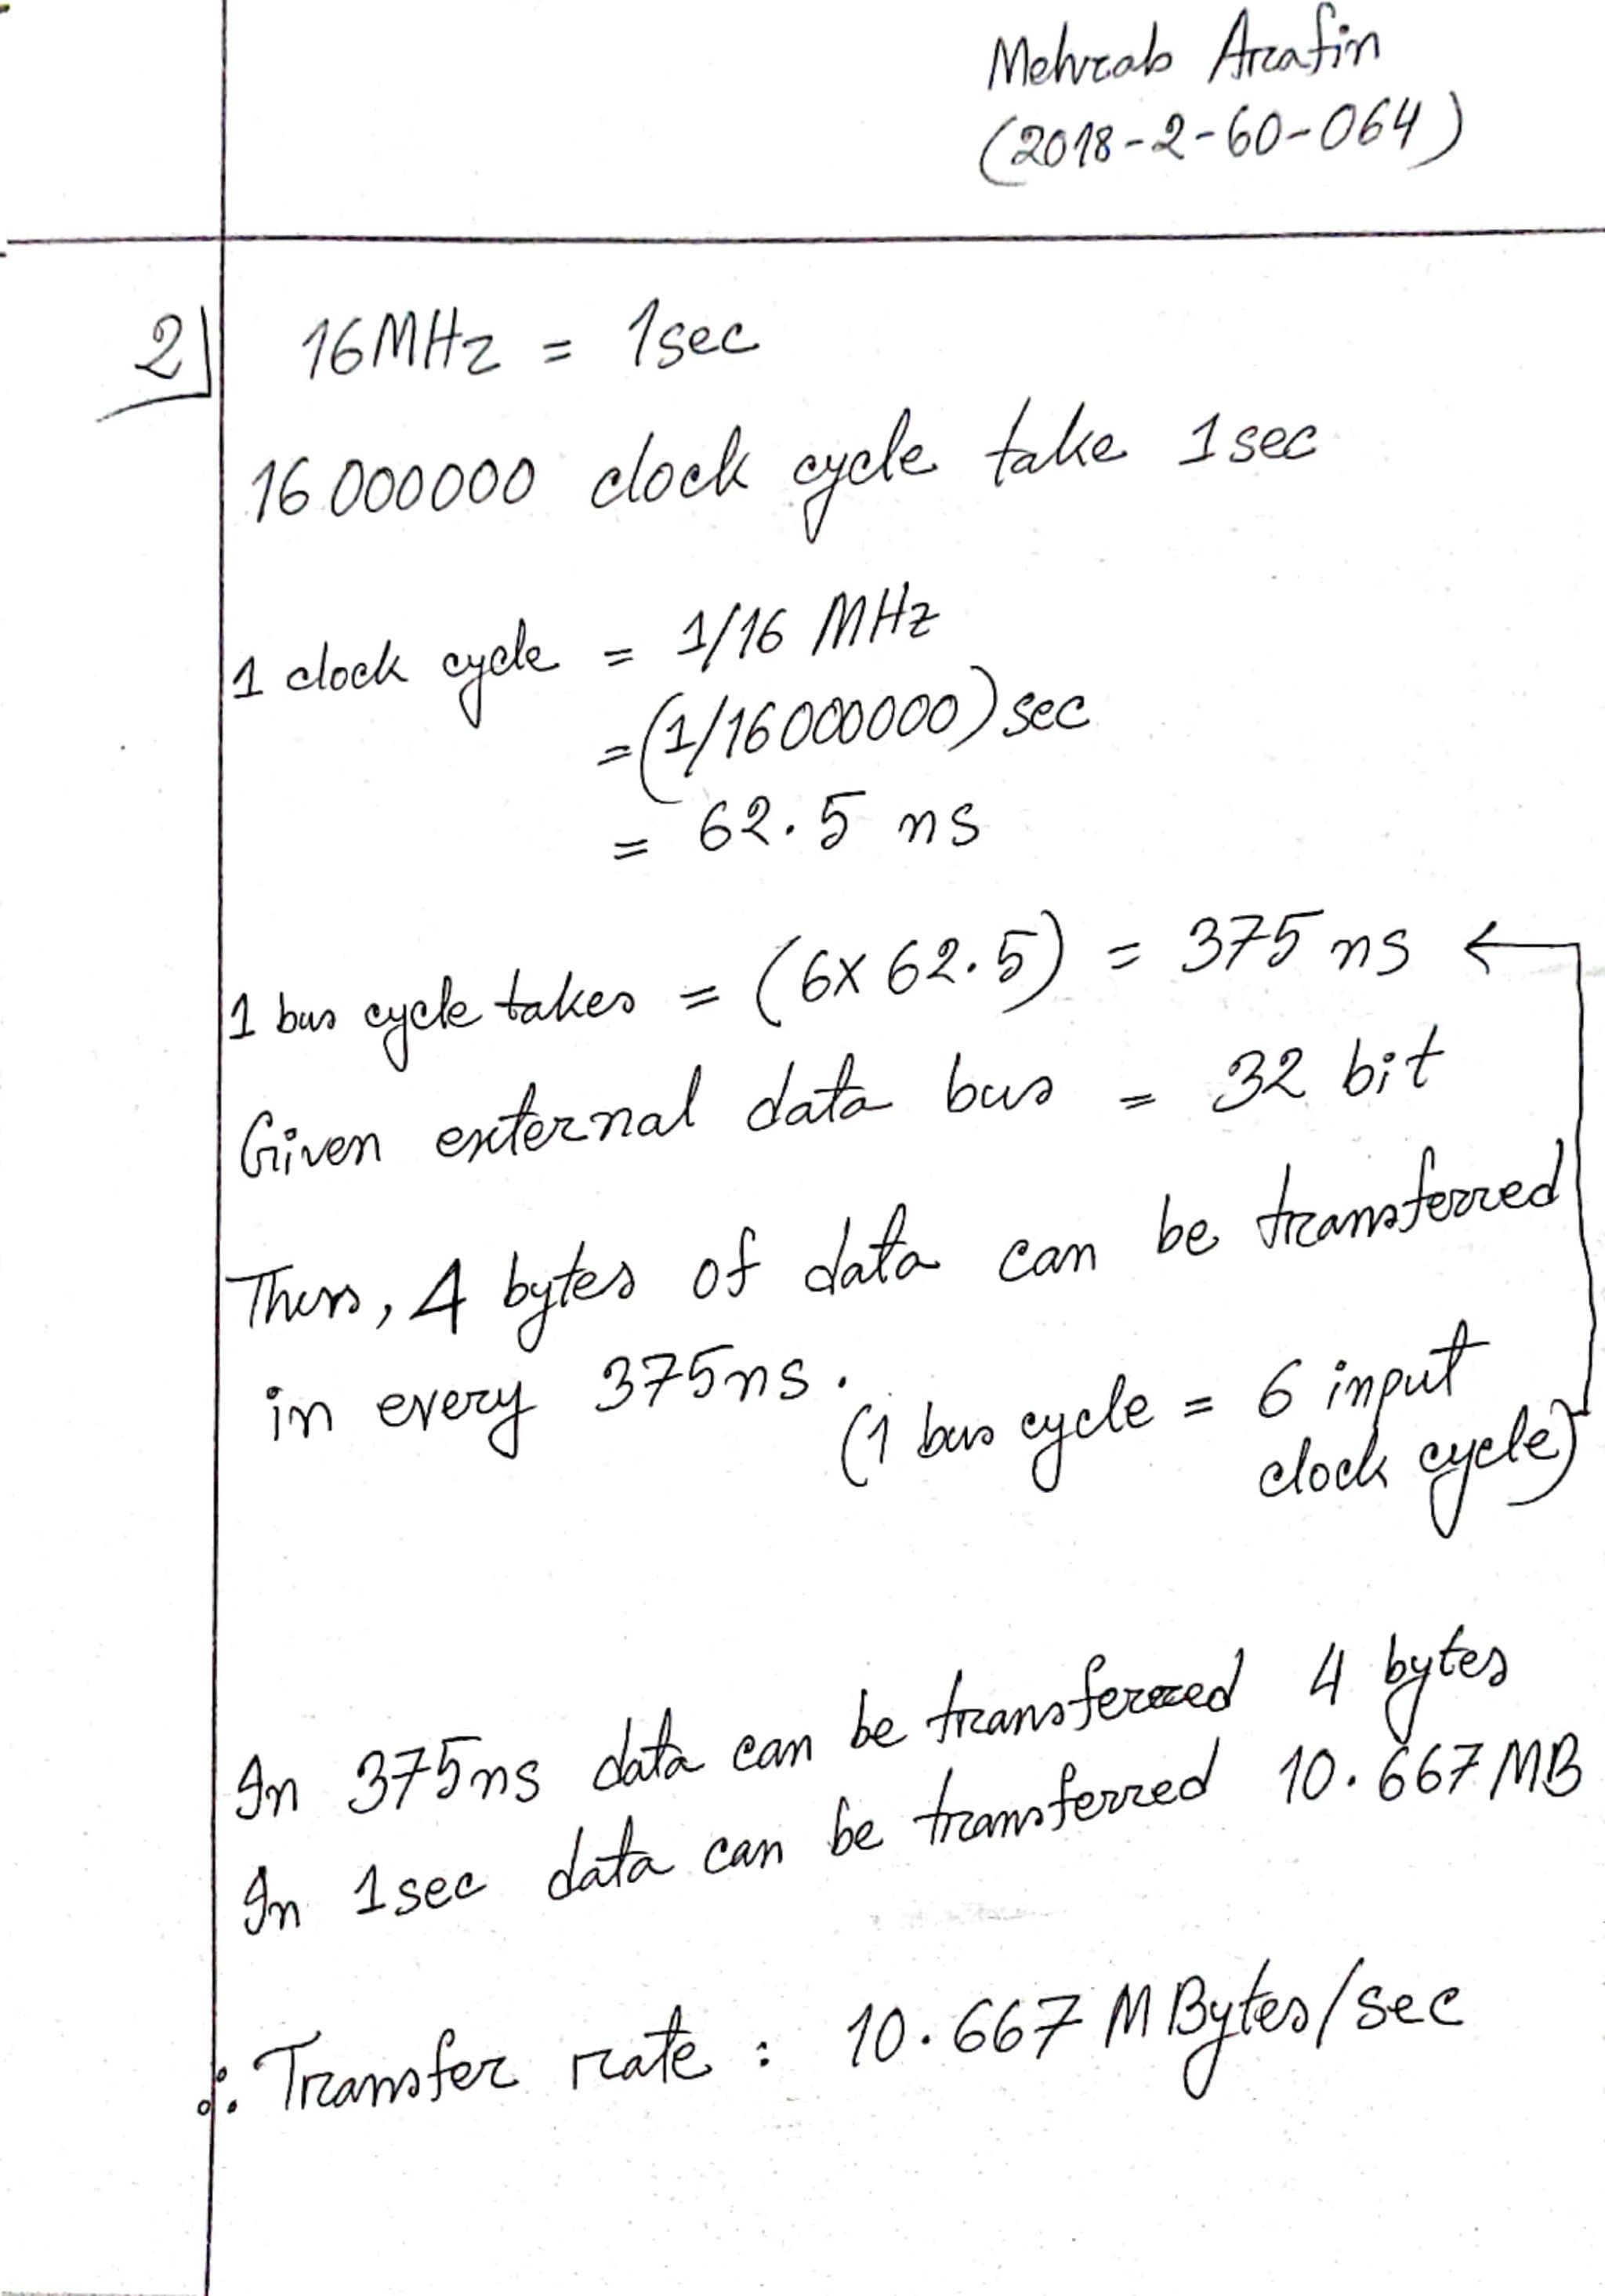 Mehrab Arafin
(2018-2-60-064)
2] 16MHz = 1sec
16000000 clock cycle take 1sec
1 clock cycle = 1/16 MHz
=(1/16000000)sec
= 62.5 ns
1 bus cycle takes = (6x62.5) = 375 ns ←
Given external data bus = 32 bit
Thus, 4 bytes of data can be transferred
in every 375ns.
(1 bus cycle = 6 input
clock cycle)
In 375ns data can be transferred 4 bytes
In 1sec data can be transferred 10.667MB
∴ Transfer rate : 10.667 MBytes/sec